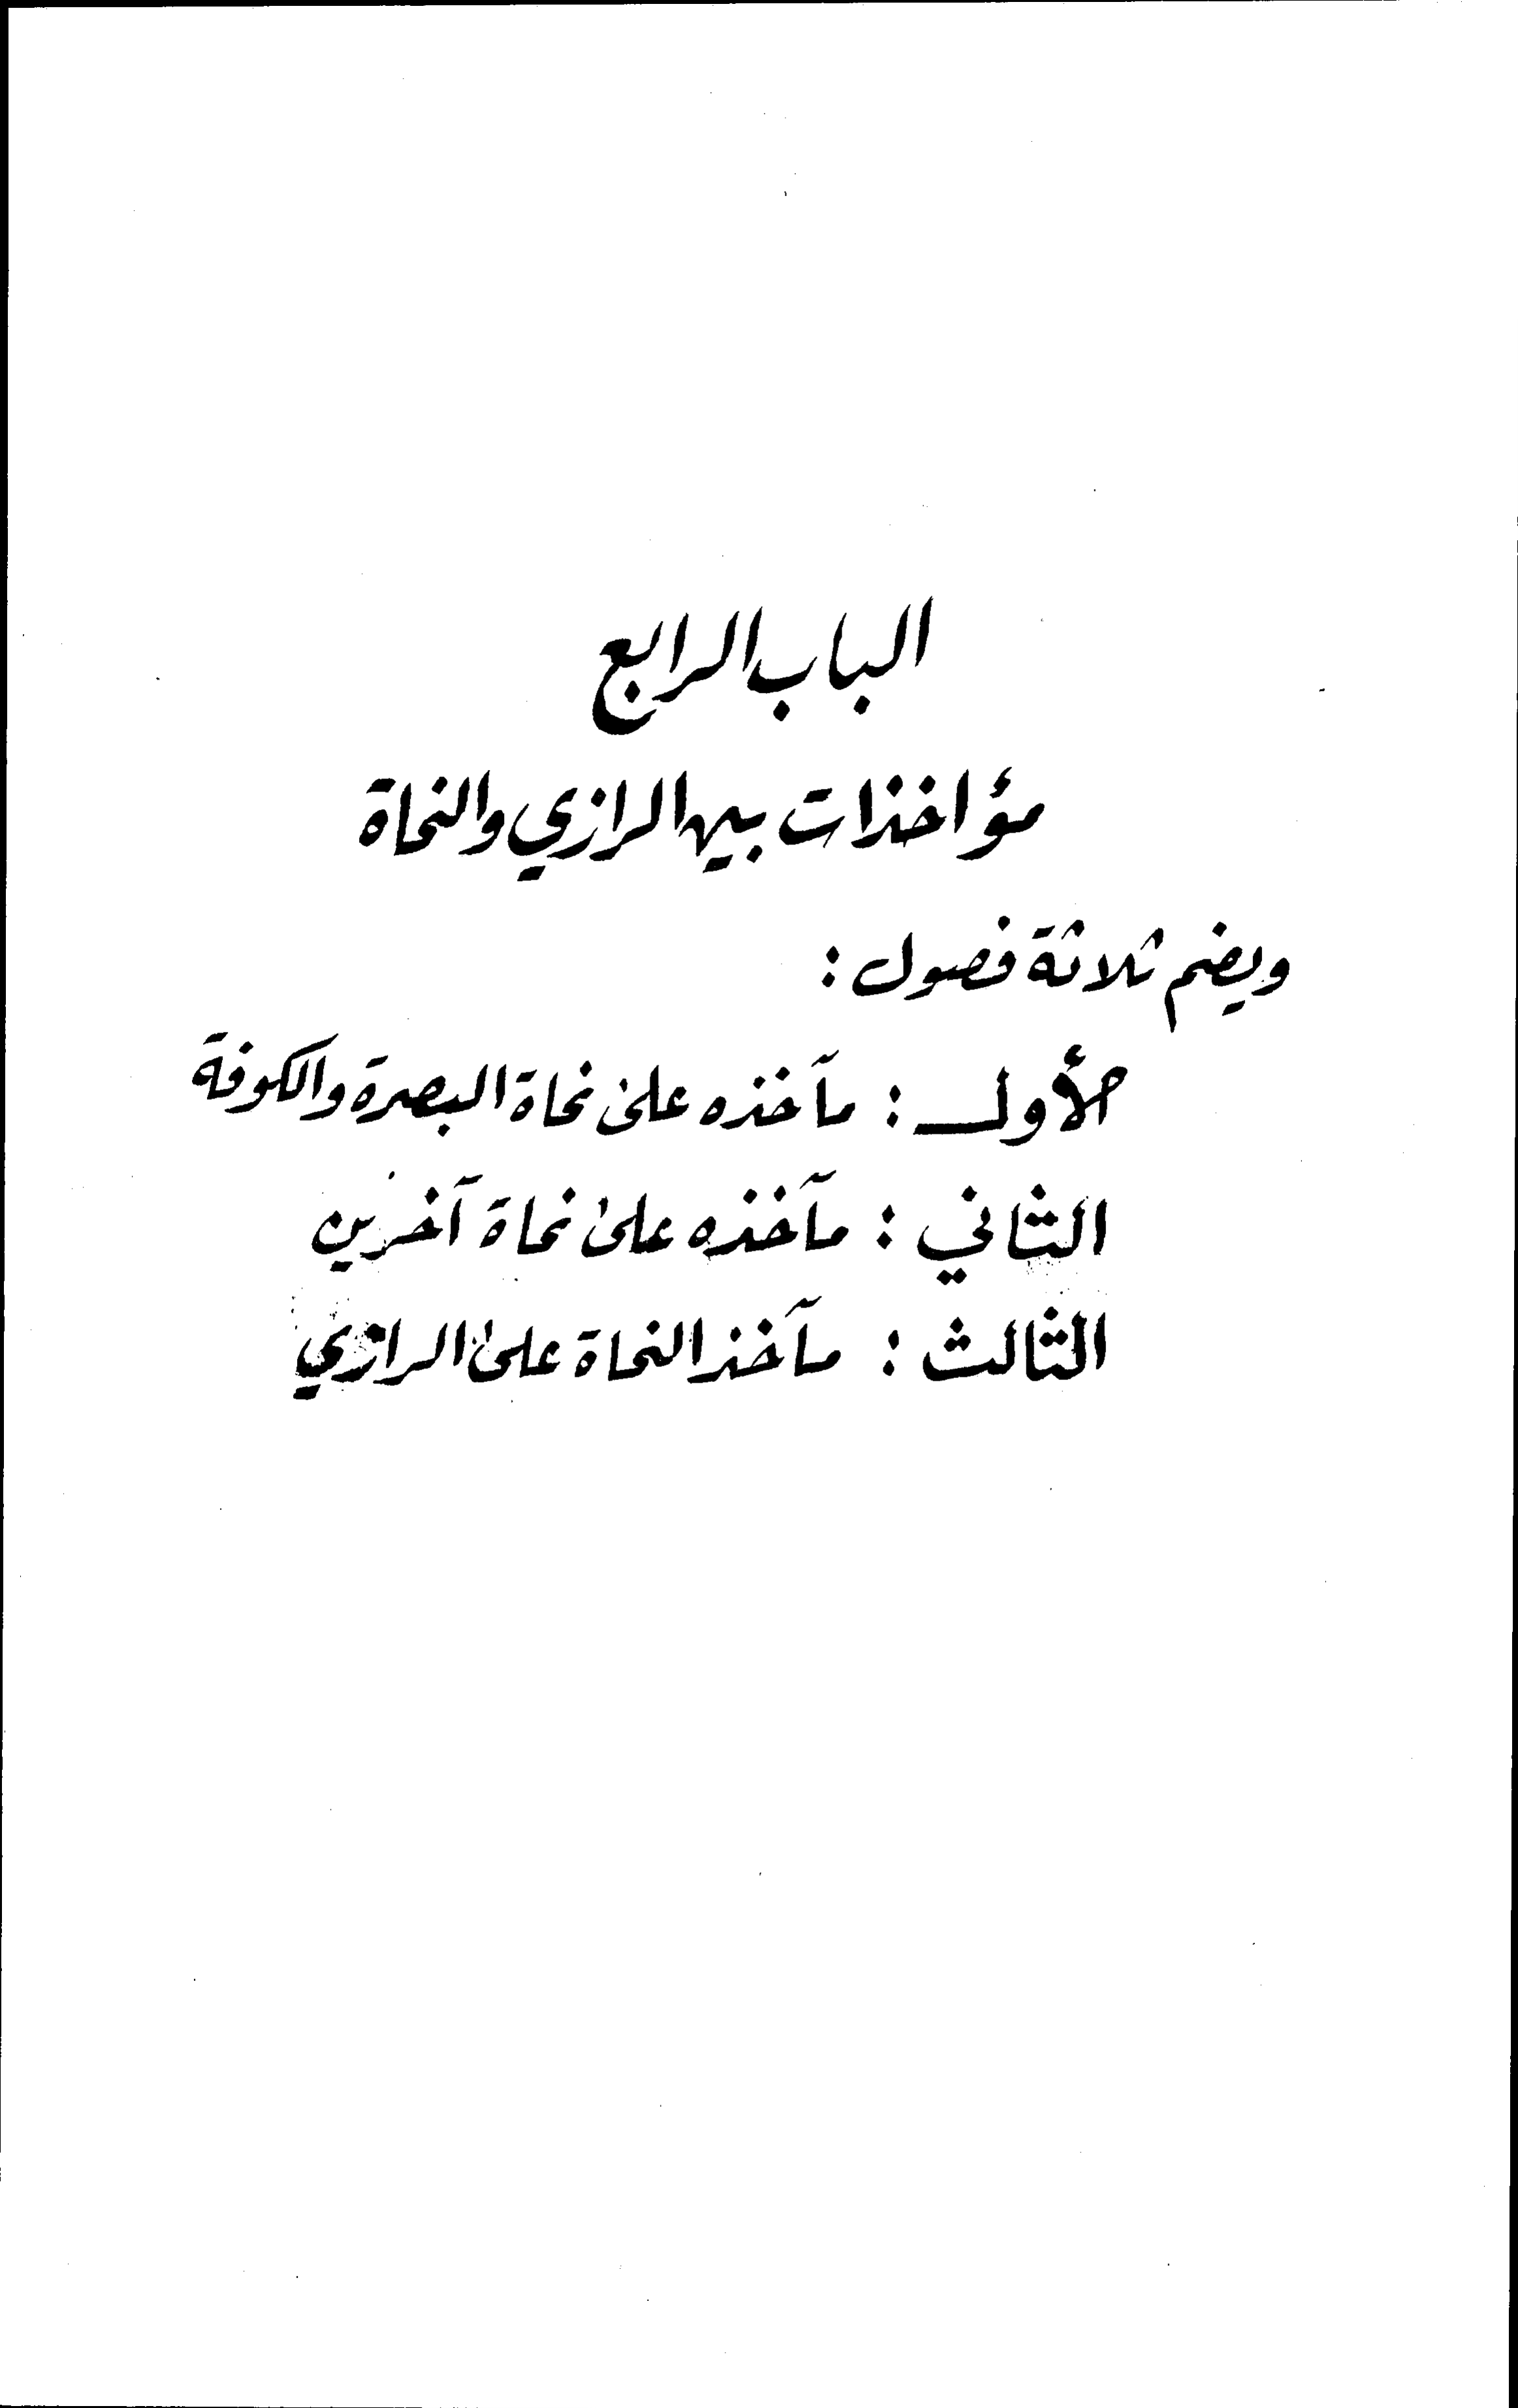 الباب الرابع
مؤاخذات بين الرازي والنحاة
ويضم ثلاثة فصول :
الأول : مآخذه على نحاة البصرة والكوفة
الثاني : مآخذه على نحاة آخرين
الثالث : مآخذ النحاة على الرازي